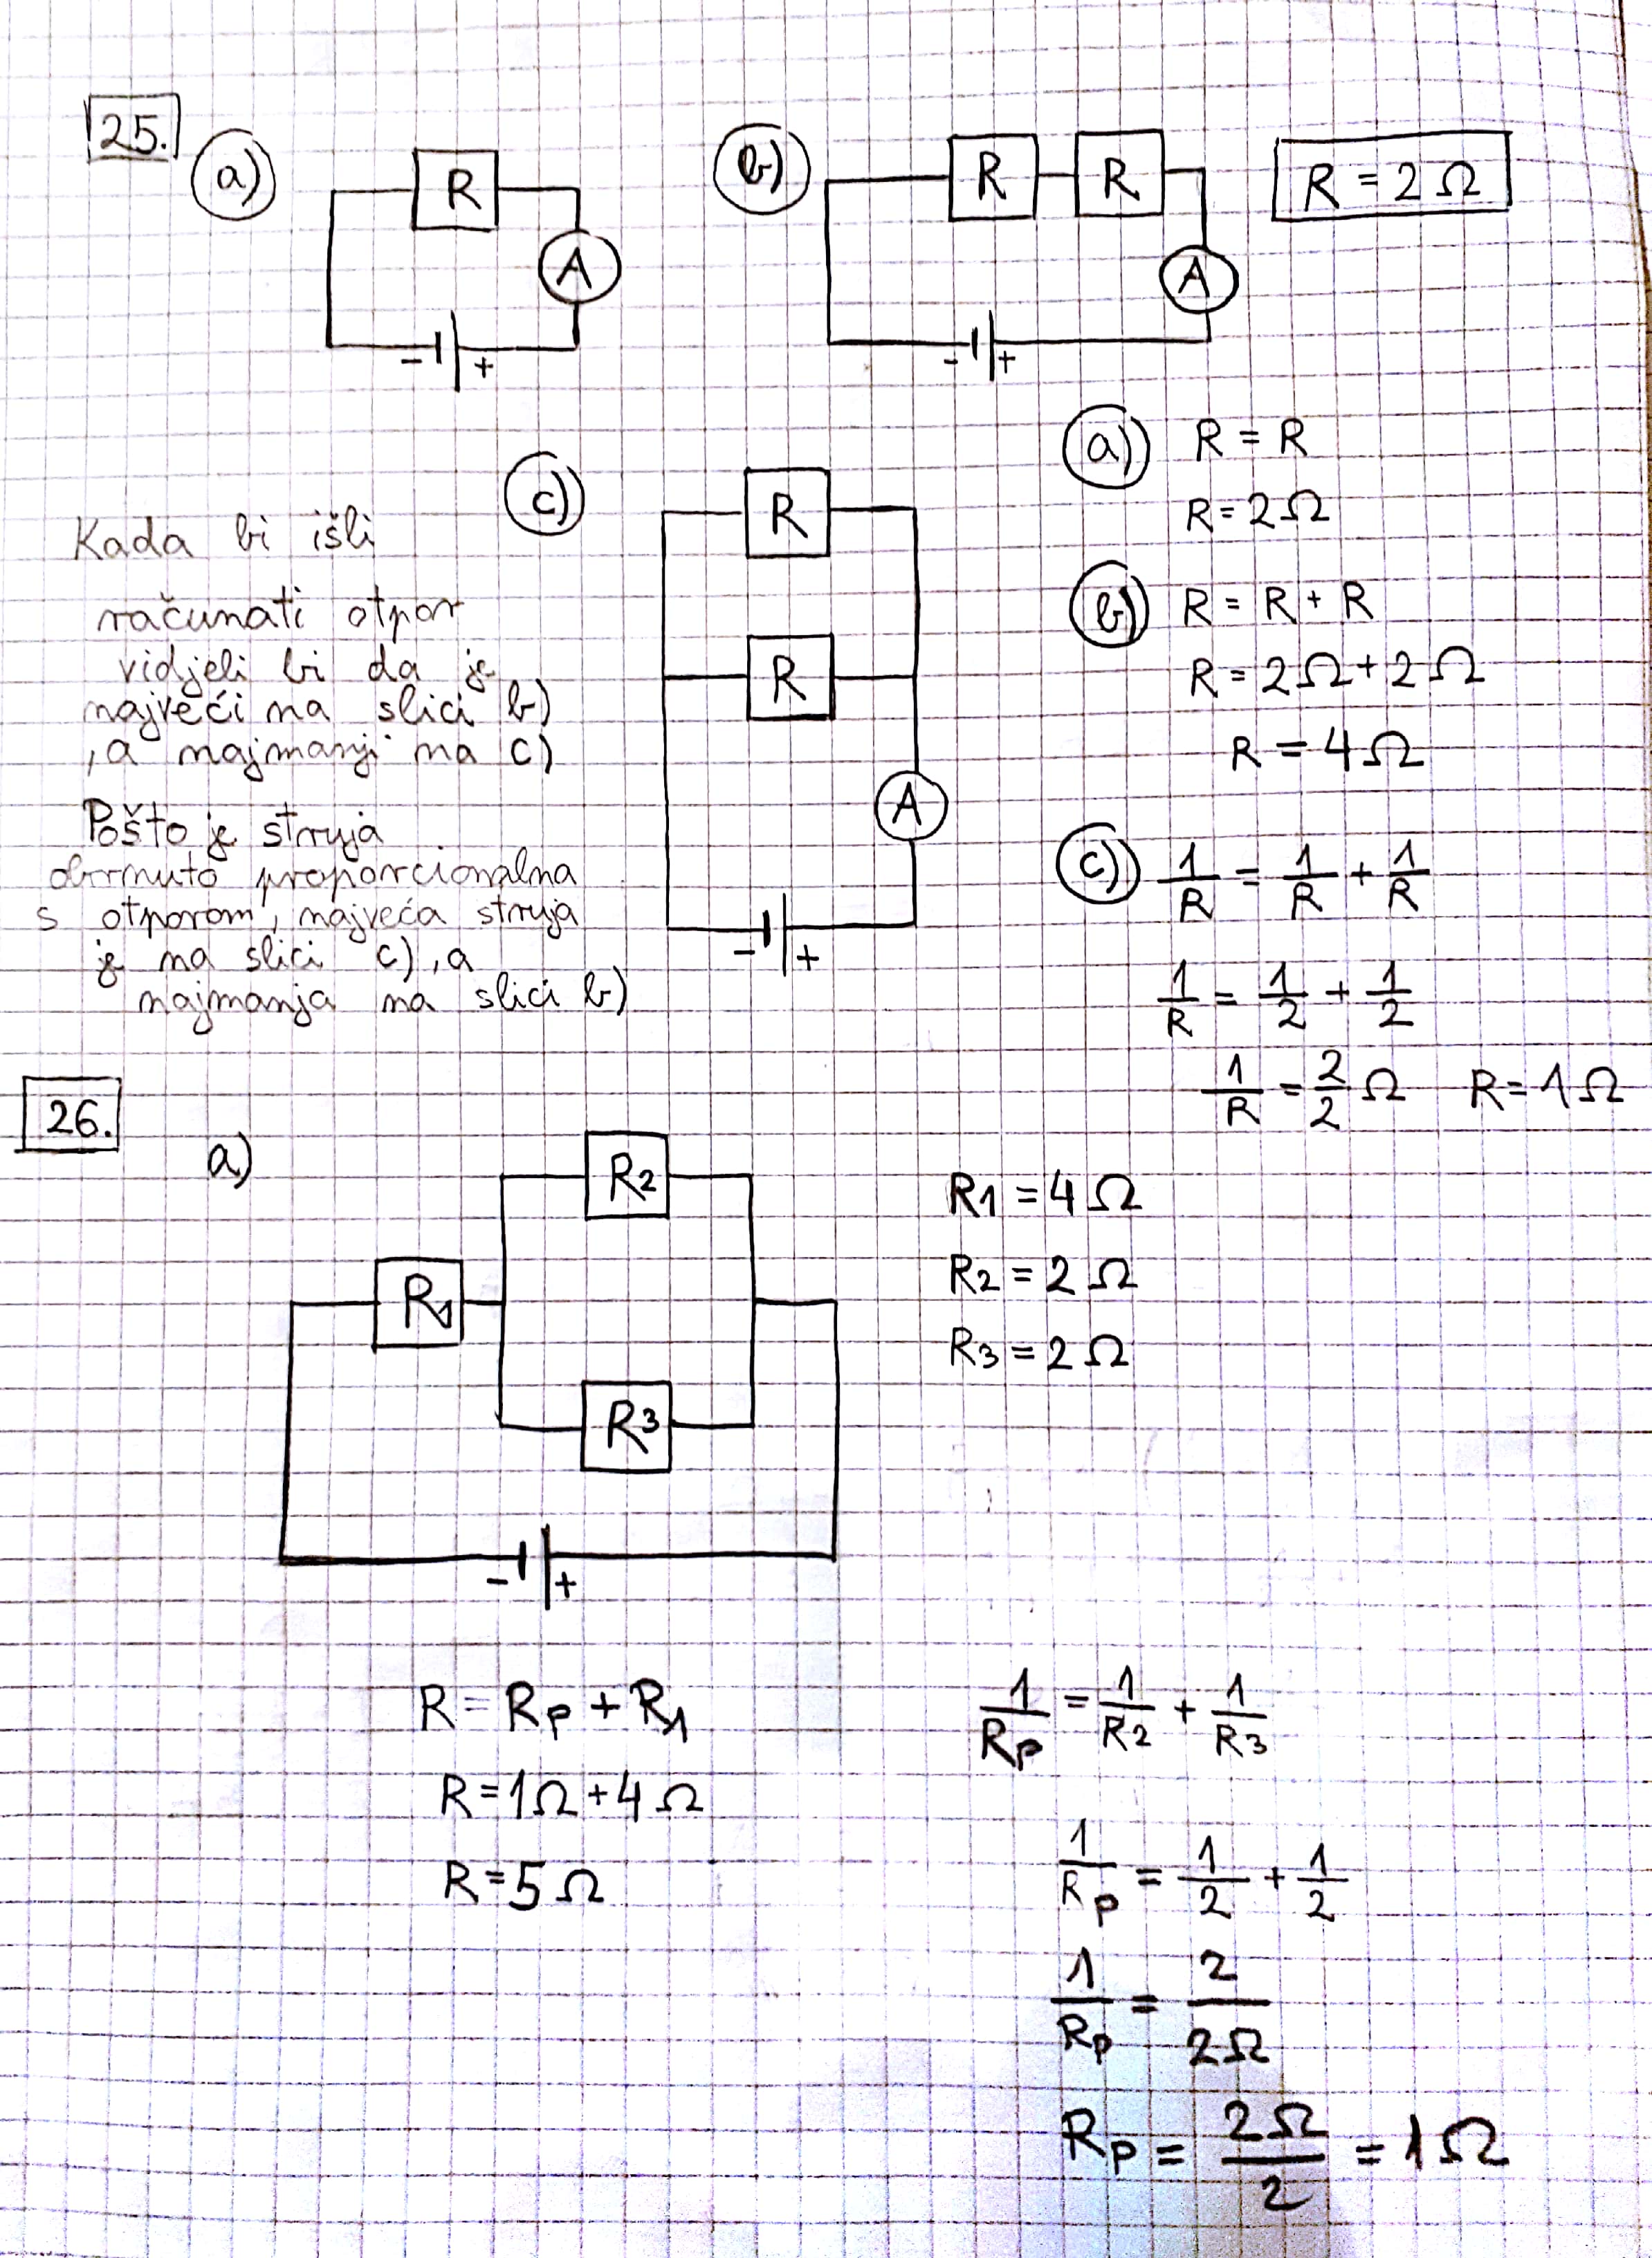 25.
a)
R
A
- +
b)
R R
A
- +
R = 2 Ω
c)
R
R
A
- +
Kada bi išli
računati otpor
vidjeli bi da je
najveći na slici b)
, a najmanji na c)
Pošto je struja
obrnuto proporcionalna
s otporom, najveća struja
je na slici c), a
najmanja na slici b)
a) R = R
R = 2Ω
b) R = R + R
R = 2Ω + 2Ω
R = 4Ω
c) 1/R = 1/R + 1/R
1/R = 1/2 + 1/2
1/R = 2/2 Ω R = 1Ω
26.
a)
R2
R1
R3
- +
R1 = 4 Ω
R2 = 2 Ω
R3 = 2 Ω
R = Rp + R1
R = 1Ω + 4 Ω
R = 5 Ω
1/Rp = 1/R2 + 1/R3
1/Rp = 1/2 + 1/2
1/Rp = 2/2Ω
Rp = 2Ω/2 = 1Ω